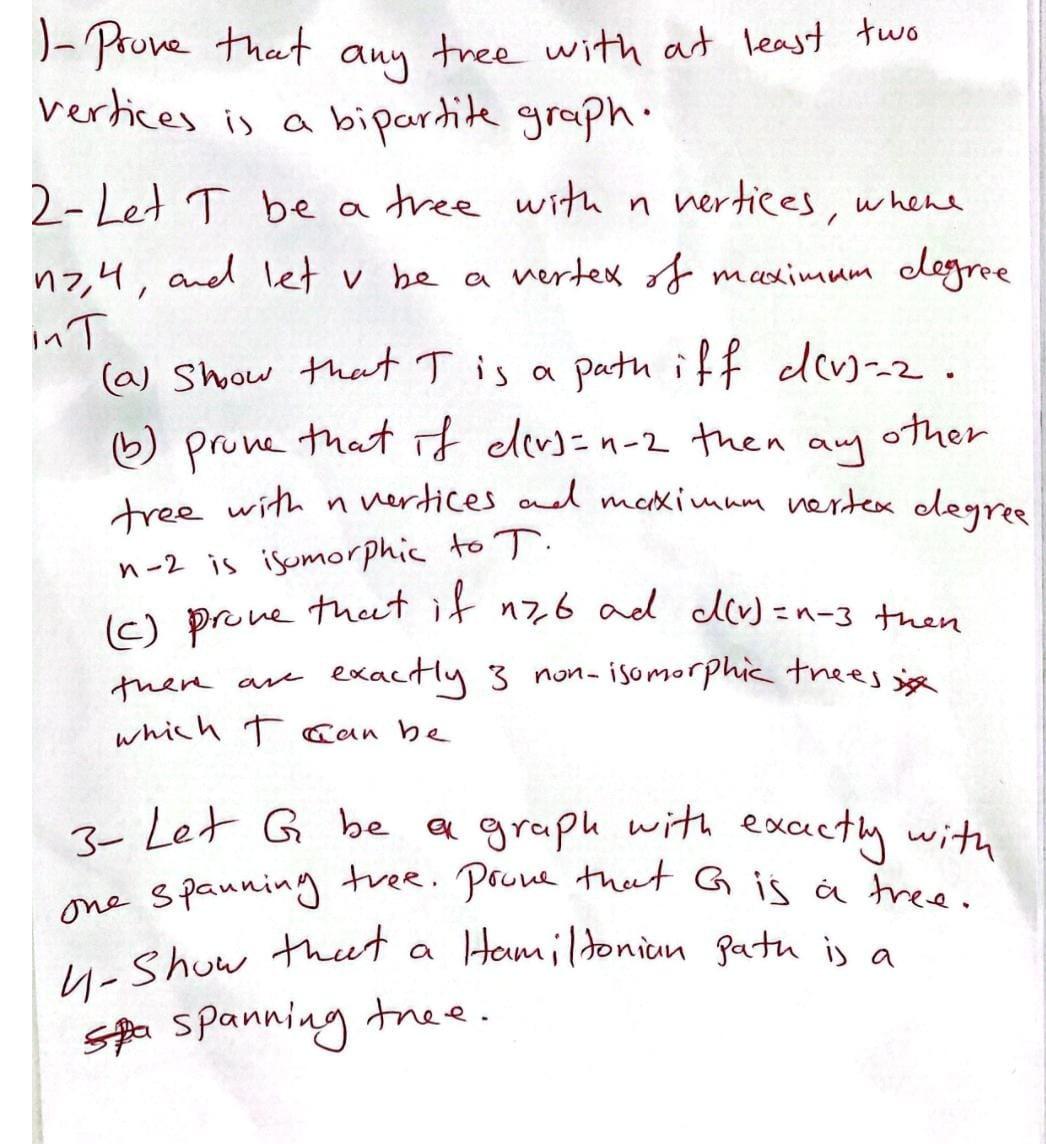 1- Prove that any tree with at least two
vertices is a bipartite graph.
2- Let T be a tree with n vertices, where
n≥4, and let v be a vertex of maximum degree
in T
(a) Show that T is a path iff d(v)=2.
(b) prove that if d(v)=n-2 then any other
tree with n vertices and maximum vertex degree
n-2 is isomorphic to T.
(c) prove that if n≥6 ad d(v)=n-3 then
there are exactly 3 non-isomorphic trees
which T can be
3- Let G be a graph with exactly with
one spanning tree. Prove that G is a tree.
4- Show that a Hamiltonian path is a
spanning tree.